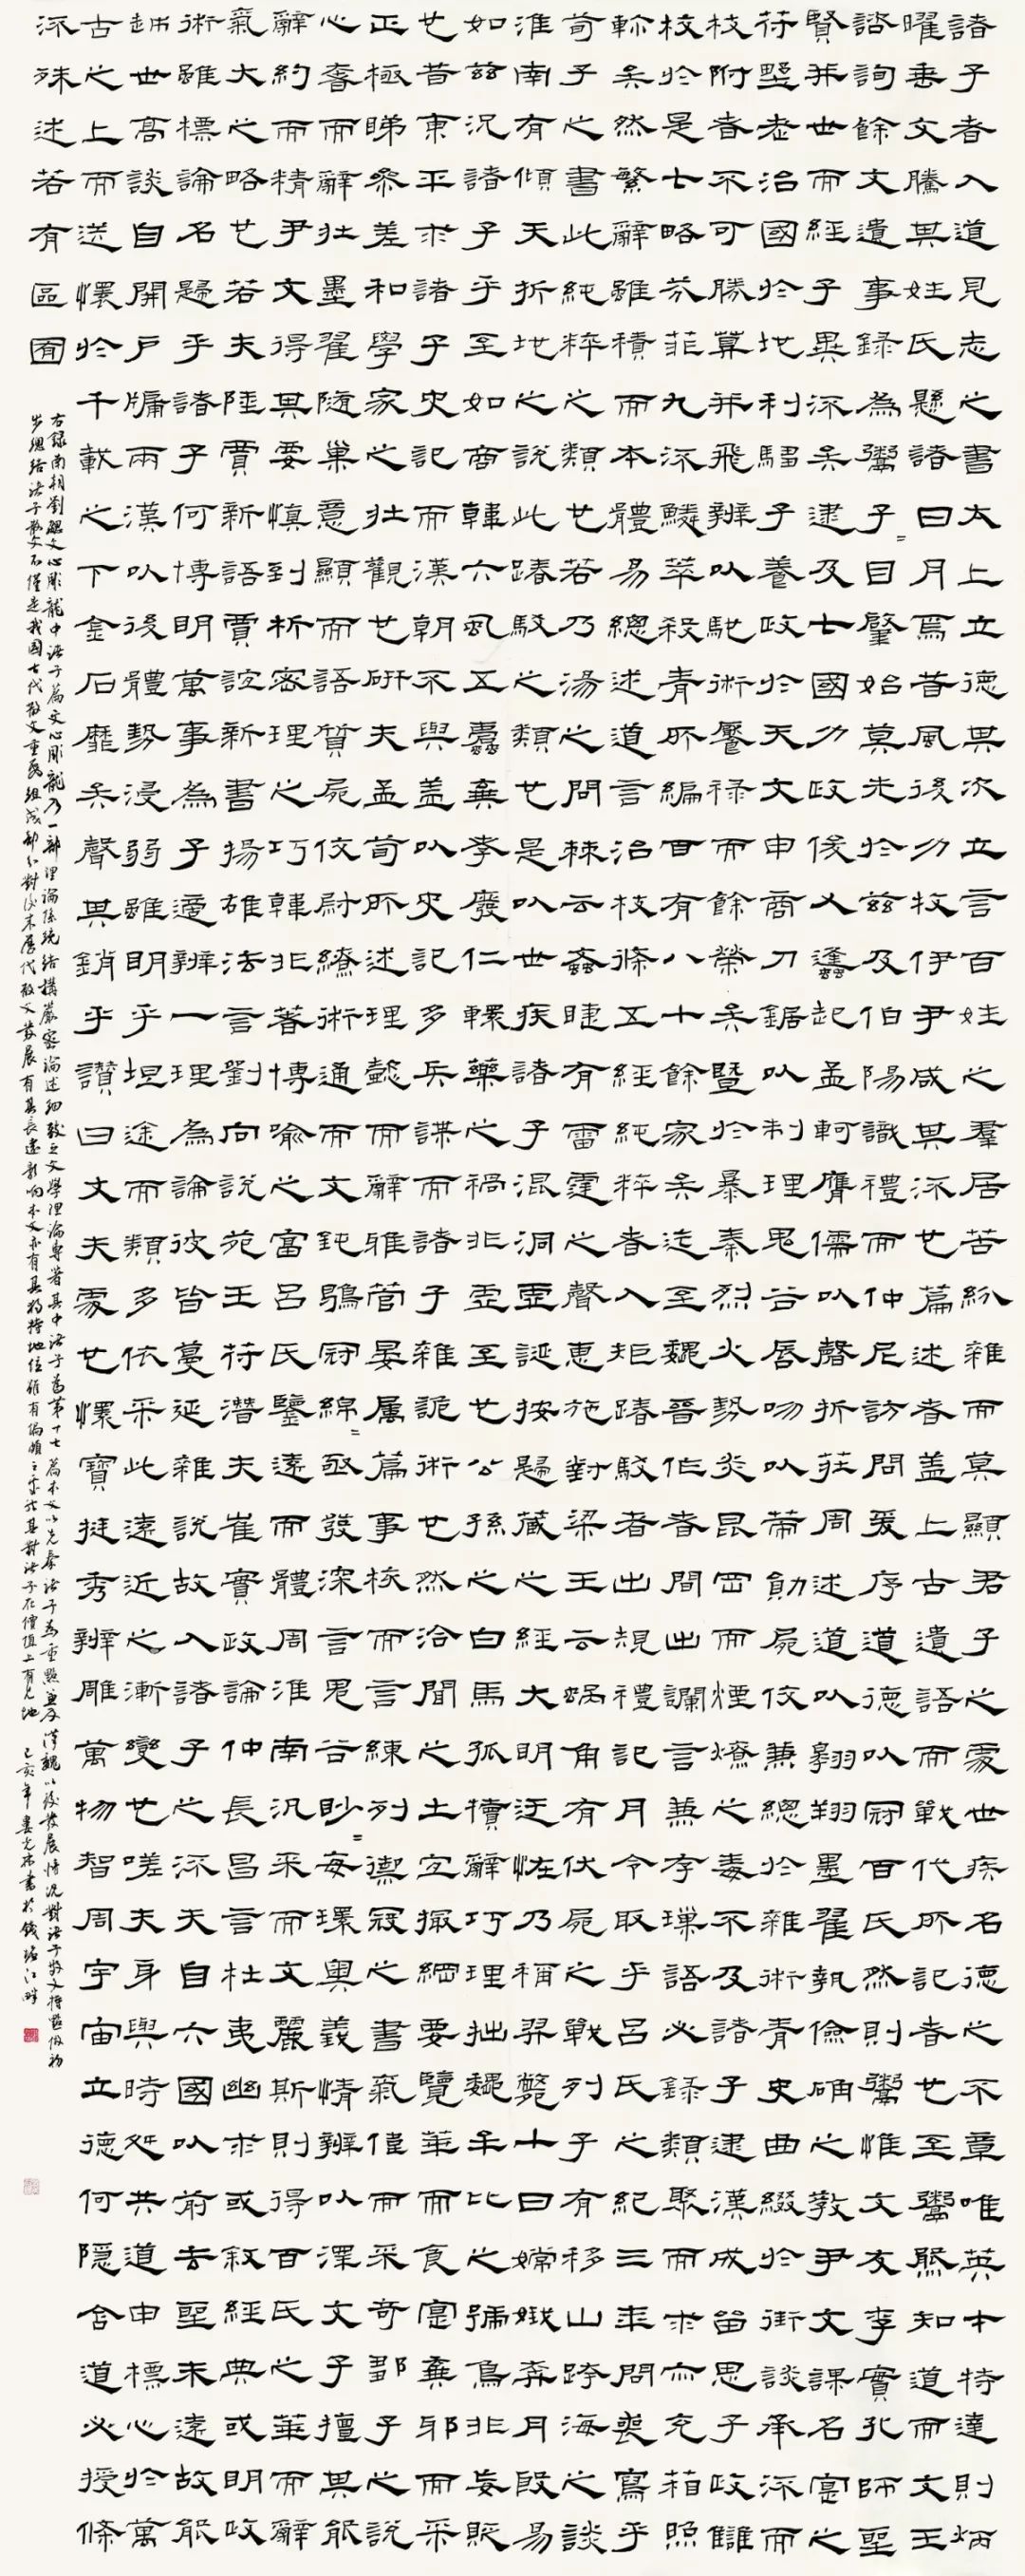 諸子者入道見志之書太上立德其次立言百姓之羣居苦紛雜而莫顯君子之處世疾名德之不章唯英才特達則炳
曜垂文騰其姓氏懸諸日月焉昔風后力牧伊尹咸其流也篇述者蓋上古遺語而戰代所記者也至鬻熊知道而文王
諮詢餘文遺事錄為鬻子=目肇始莫先於茲及伯陽識禮而仲尼訪問爰序道德以冠百氏然則鬻惟文友李實孔師聖
賢並世而經子異流矣逮及七國力政俊乂蠭起孟軻膺儒以磬折莊周述道以翱翔墨翟執儉确之教尹文課名實之
符野老治國於地利騶子養政於天文申商刀鋸以制理鬼谷唇吻以策勳尸佼兼總於雜術青史曲綴於街談承流而
枝附者不可勝算並飛辨以馳術饜祿而餘榮矣暨於暴秦烈火勢炎崑岡而煙燎之毒不及諸子逮漢成留思子政讎
校於是七略芬菲九流鱗萃殺青所編百有八十餘家矣迄至魏晉作者間出讕言兼存璅語必錄類聚而求亦充箱照
軫矣然繁辭雖積而本體易總述道言治枝條五經純粹者入矩踳駁者出規禮記月令取乎呂氏之紀三年問喪寫乎
荀子之書此純粹之類也若乃湯之問棘云蚊睫有雷霆之聲惠施對梁王云蝸角有伏尸之戰列子有移山跨海之談
淮南有傾天折地之說此踳駁之類也是以世疾諸子混洞虛誕按歸藏之經大明迂怪乃稱羿斃十日嫦娥奔月殷易
如茲況諸子乎至如商韓六蝨五蠹棄孝廢仁轘藥之禍非虛至也公孫之白馬孤犢辭巧理拙魏牟比之號鳥非妄貶
也昔東平求諸子史記而漢朝不與蓋以史記多兵謀而諸子雜詭術也然洽聞之士宜撮綱要覽華而食實棄邪而采
正極睇參差和學家之壯觀也研夫孟荀所述理懿而辭雅管晏屬篇事核而言練列禦寇之書氣偉而采奇鄒子之說
心奢而辭壯墨翟隨巢意顯而語質尸佼尉繚術通而文鈍鶡冠綿=亟發深言鬼谷眇=每環奧義情辨以澤文子擅其能
辭約而精尹文得其要慎到析密理之巧韓非著博喻之富呂氏鑒遠而體周淮南汎采而文麗斯則得百氏之華而辭
氣大之略也若夫陸賈新語賈誼新書揚雄法言劉向說苑王符潛夫崔實政論仲長昌言杜夷幽求或敘經典或明政
術雖標論名歸乎諸子何博明萬事為子適辨一理為論彼皆蔓延雜說故入諸子之流夫自六國以前去聖未遠故能
越世高談自開戶牖兩漢以後體勢浸弱雖明乎坦途而類多依采此遠近之漸變也嗟夫身與時舛共道申標心於萬
古之上而送懷於千載之下金石靡矣聲其銷乎讚曰丈夫處也懷寶挺秀辨雕萬物智周宇宙立德何隱含道必授條
流殊述若有區囿
右錄南朝劉勰文心雕龍中諸子篇文心雕龍乃一部理論系統結構嚴密論述細致之文學理論專著其中諸子為第十七篇本文以先秦諸子為重點兼及漢魏以後發展情況對諸子散文特點做初
步總結諸子散文不僅是我國古代散文重要組成部分對後來歷代散文發展有其長遠影響本文亦有其獨特地位雖有偏頗之處然其對諸子在價值上有見地 己亥年書於錢塘江畔